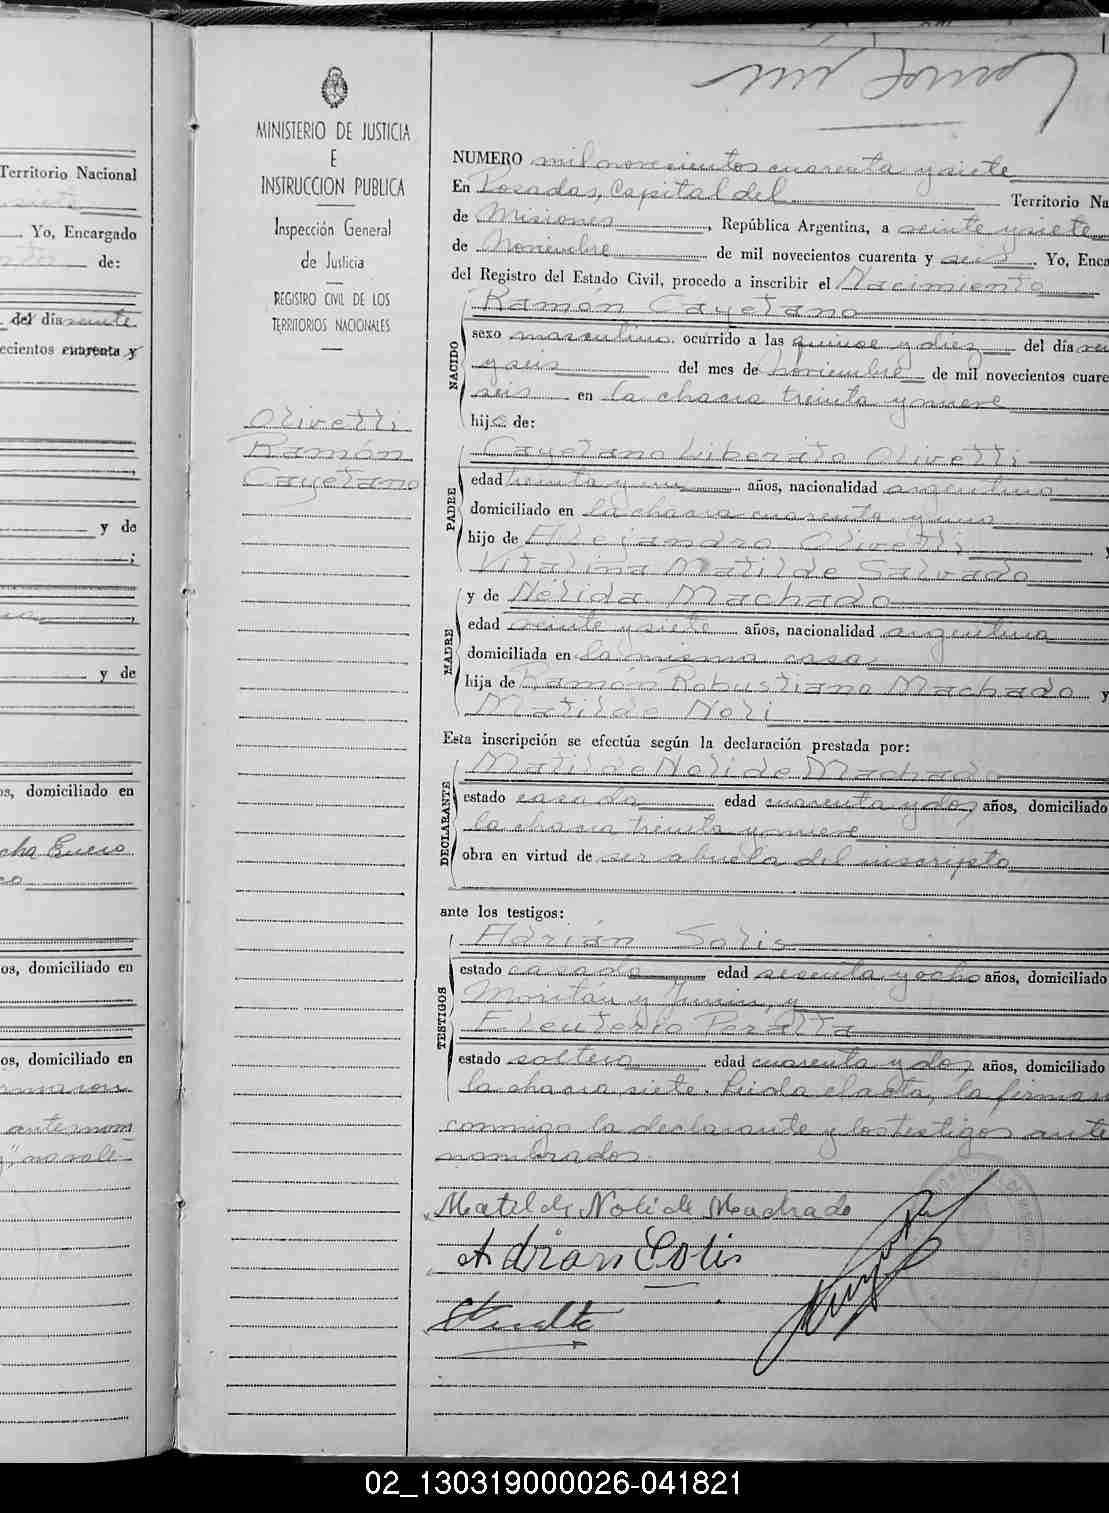 Territorio Nacional
Yo, Encargado
de:
del día veinte
ecientos cuarenta y
y de
;
y de
os, domiciliado en
cha Enero
os, domiciliado en
os, domiciliado en
ante nom
no vale
MINISTERIO DE JUSTICIA
E
INSTRUCCION PUBLICA
Inspección General
de Justicia
REGISTRO CIVIL DE LOS
TERRITORIOS NACIONALES
Olivetti
Ramón
Cayetano
NUMERO mil novecientos cuarenta y siete
En Posadas, Capital del Territorio Na
de Misiones, República Argentina, a veinte y siete
de Noviembre de mil novecientos cuarenta y seis. Yo, Enca
del Registro del Estado Civil, procedo a inscribir el Nacimiento
NACIDO
Ramón Cayetano
sexo masculino ocurrido a las quince y diez del día vei
y seis del mes de noviembre de mil novecientos cuare
seis en la chacra treinta y nueve
hijo de:
PADRE
Cayetano Liberato Olivetti
edad treinta y un años, nacionalidad argentino
domiciliado en la chacra cuarenta y uno
hijo de Alejandro Olivetti y
Vitalina Matilde Salvado
MADRE
y de Nélida Machado
edad veinte y siete años, nacionalidad argentina
domiciliada en la misma casa
hija de Ramón Robustiano Machado y
Matilde Noli
Esta inscripción se efectúa según la declaración prestada por:
DECLARANTE
Matilde Noli de Machado
estado casada edad cuarenta y dos años, domiciliado
la chacra treinta y nueve
obra en virtud de ser abuela del inscripto
ante los testigos:
TESTIGOS
Adrián Solis
estado casado edad sesenta y ocho años, domiciliado
y Junin, y
Eleuterio Peralta
estado soltero edad cuarenta y dos años, domiciliado
la chacra siete. Leida el acta, la firman
conmigo la declarante y los testigos ante
nombrados.
Matilde Noli de Machado
Adrian Solis
02_130319000026-041821